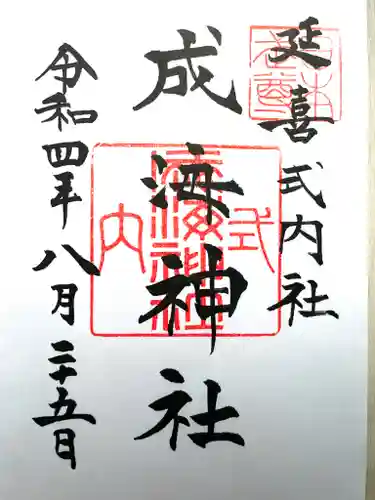 延喜式内社
成海神社
令和四年八月二十五日
式
成海神社
内